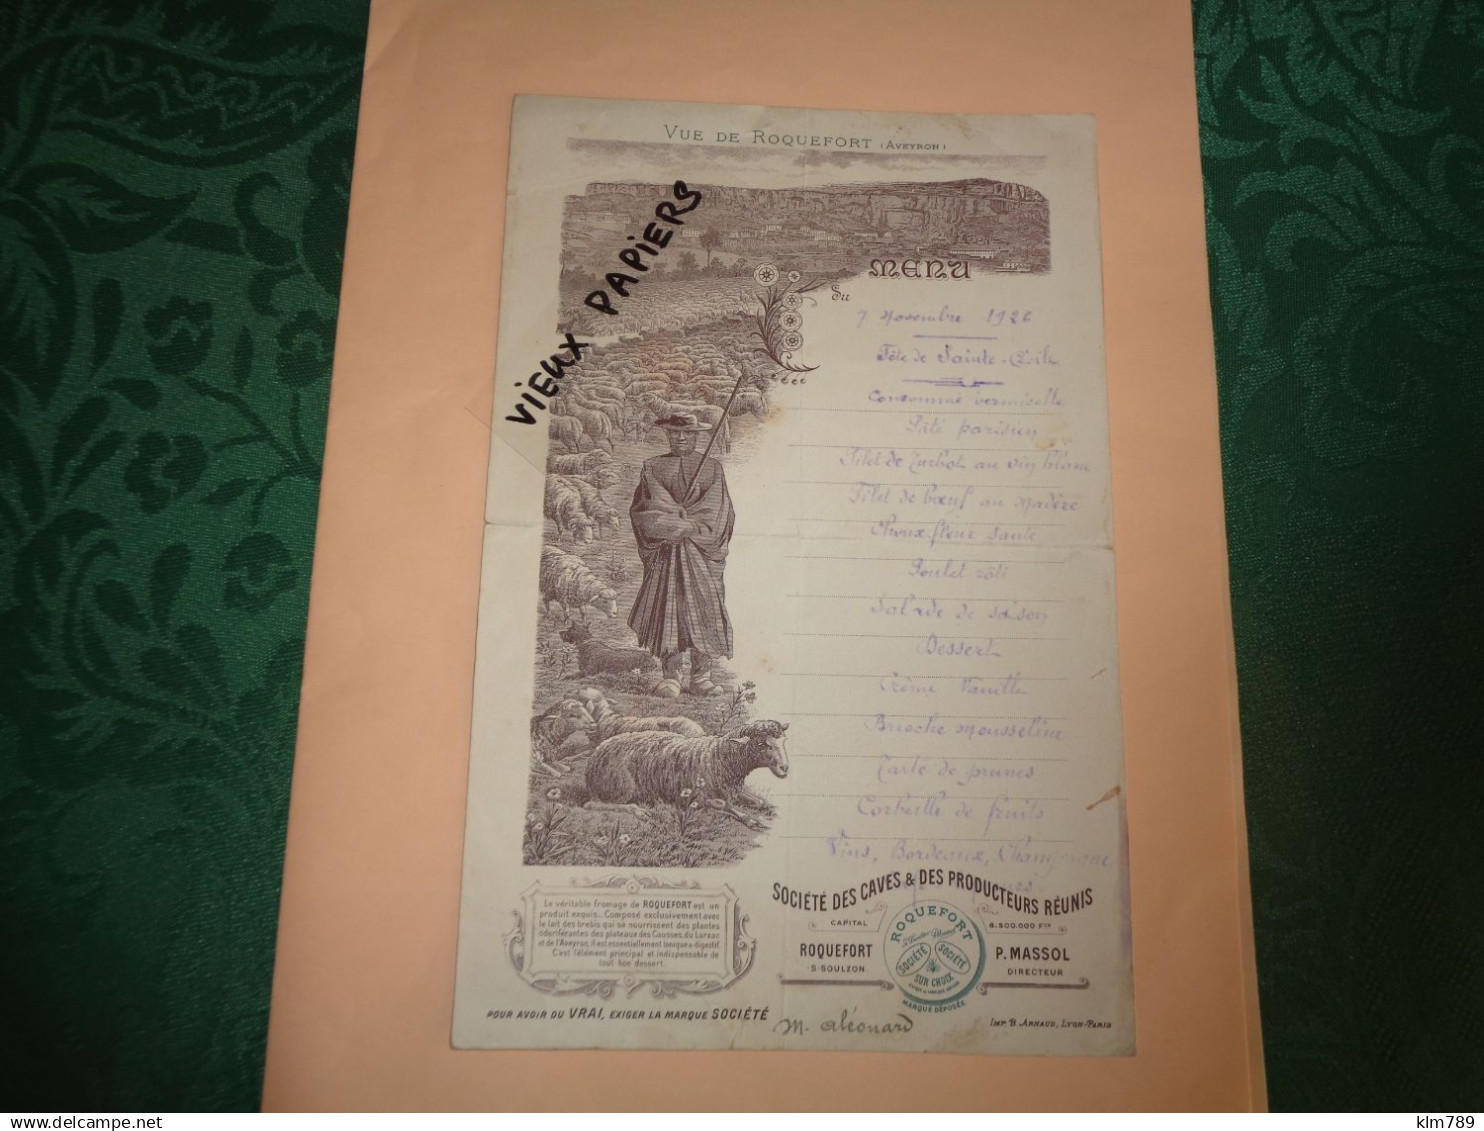 VUE DE ROQUEFORT (AVEYRON)
VIEUX PAPIERS
MENU
Du
7 Novembre 1922
Fête de Sainte-Cécile
Consommé vermicelle
Pâté parisien
Filet de Turbot au vin blanc
Filet de bœuf au Madère
Choux-fleur sauté
Poulet rôti
Salade de saison
Dessert
Crème Vanille
Brioche mousseline
Tarte de prunes
Corbeille de fruits
Vins, Bordeaux, Champagne
Le véritable fromage de ROQUEFORT est un
produit exquis.. Composé exclusivement avec
le lait des brebis qui se nourrissent des plantes
odoriférantes des plateaux des Causses, du Larzac
et de l'Aveyron, il est essentiellement tonique & digestif.
C'est l'élément principal et indispensable de
tout bon dessert.
POUR AVOIR DU VRAI, EXIGER LA MARQUE SOCIÉTÉ
SOCIÉTÉ DES CAVES & DES PRODUCTEURS RÉUNIS
CAPITAL 8.500.000 Frs
ROQUEFORT
S/SOULZON
P. MASSOL
DIRECTEUR
ROQUEFORT
SOCIÉTÉ SOCIÉTÉ
SUR CHOIX
MARQUE DÉPOSÉE
M. Aléonard
IMP. B. ARNAUD, LYON-PARIS
delcampe.net
klm789